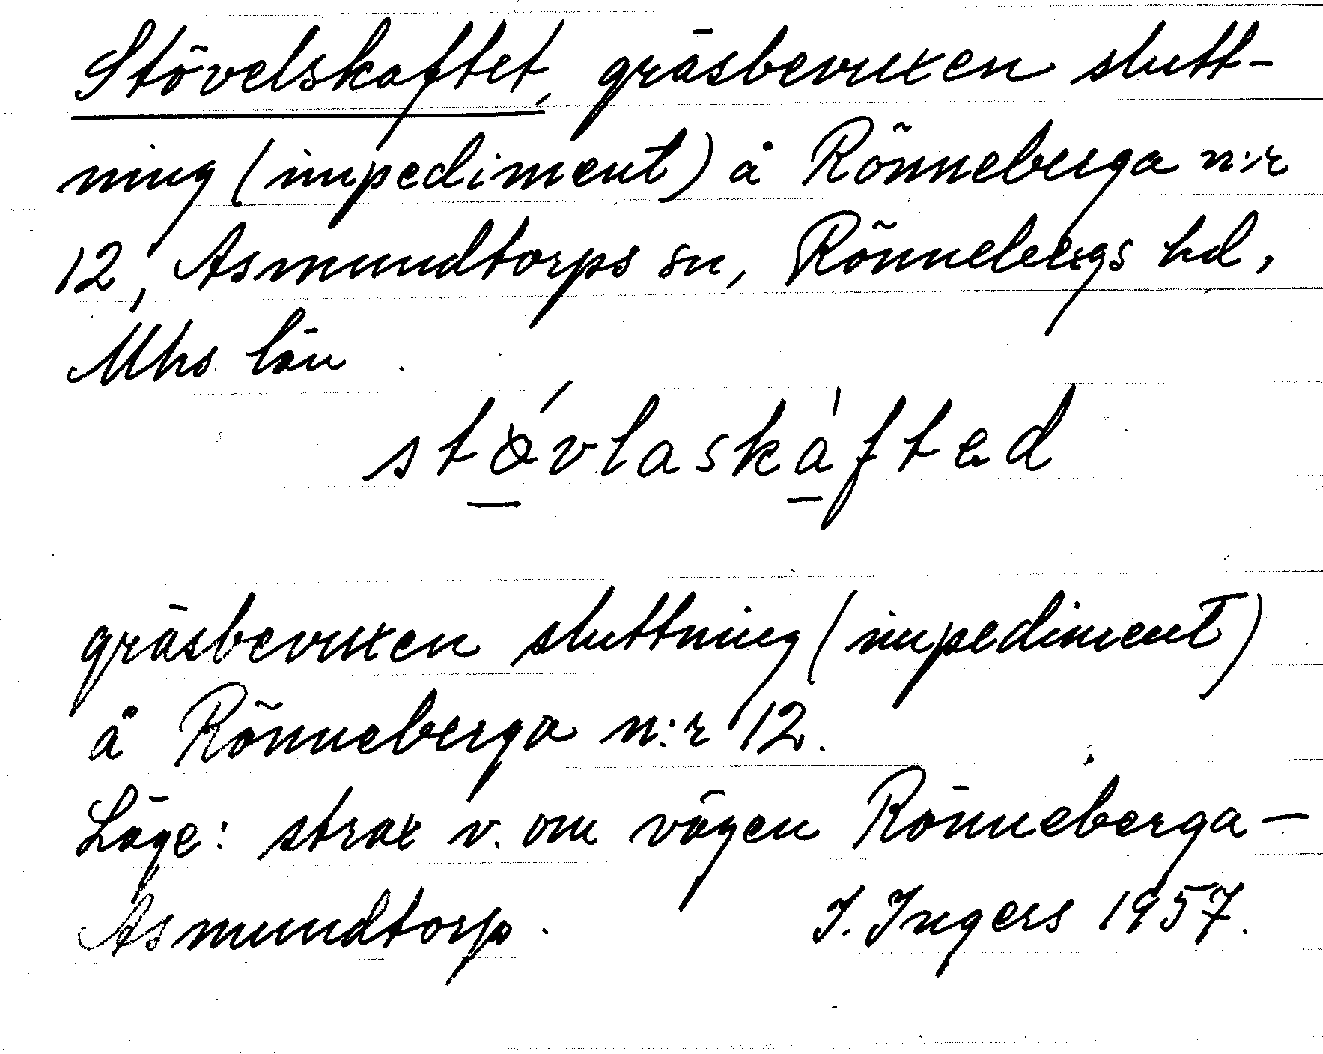 Stövelskaftet, gräsbevuxen slutt-
ning (impediment) å Rönneberga n:r
12, Asmundtorps sn, Rönnebergs hd,
Mhs län
stǿvlaskàftəd
gräsbevuxen sluttning (impediment)
å Rönneberga n:r 12.
Läge: strax v. om vägen Rönneberga–
Asmundtorp. I. Ingers 1957.